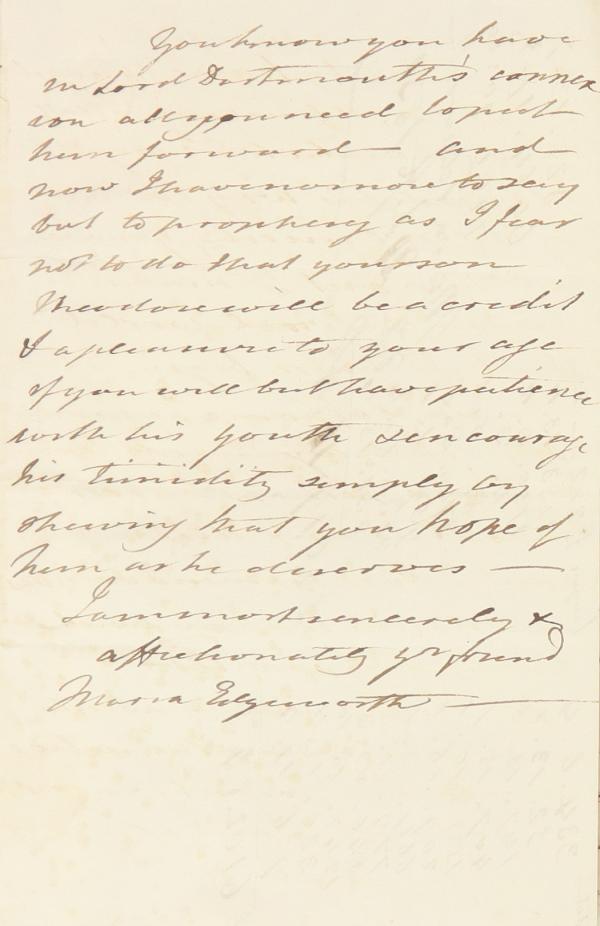 You know you have
in Lord Dartmouth's connex
ion all you need to push
him forward — and
now I have no more to say
but to prophesy as I fear
not to do that your son
Theodore will be a credit
& a pleasure to your age
if you will but have patience
with his youth & encourage
his timidity simply by
shewing that you hope of
him as he deserves —
I am most sincerely &
affectionately yr friend
Maria Edgeworth —